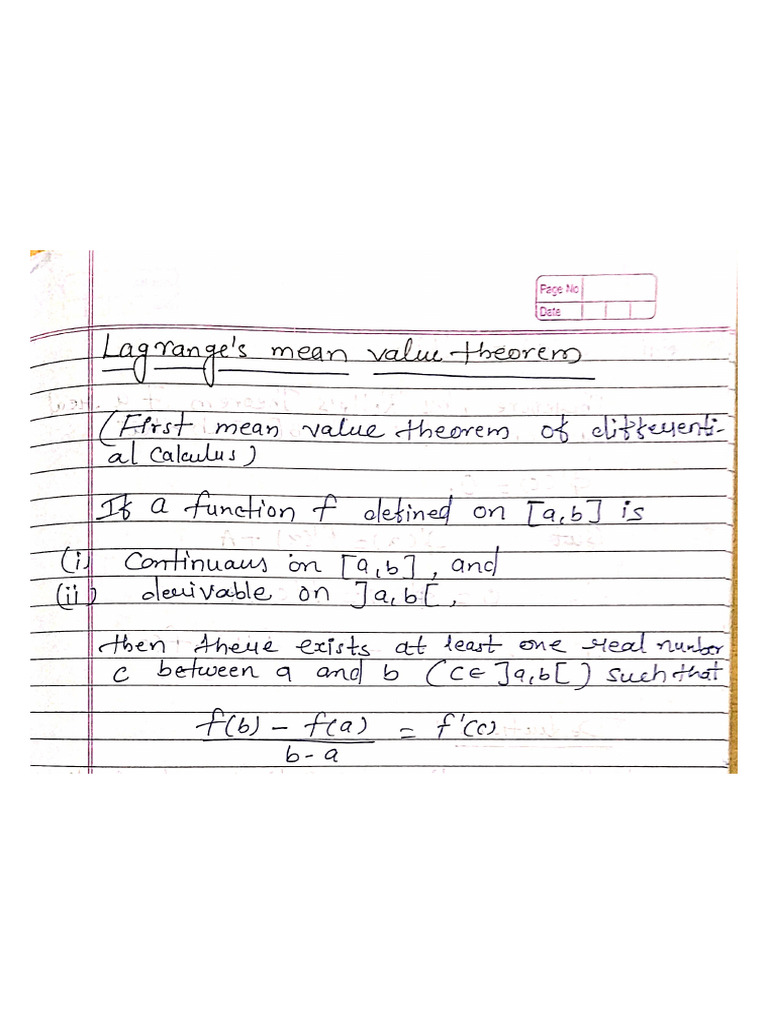 Page No
Date
Lagrange's mean value theorem
(First mean value theorem of differenti-
al calculus)
If a function f defined on [a,b] is
(i) Continuous on [a,b], and
(ii) derivable on ]a,b[,
then there exists at least one real number
c between a and b (c∈]a,b[) such that
f(b) - f(a) = f'(c)
b-a